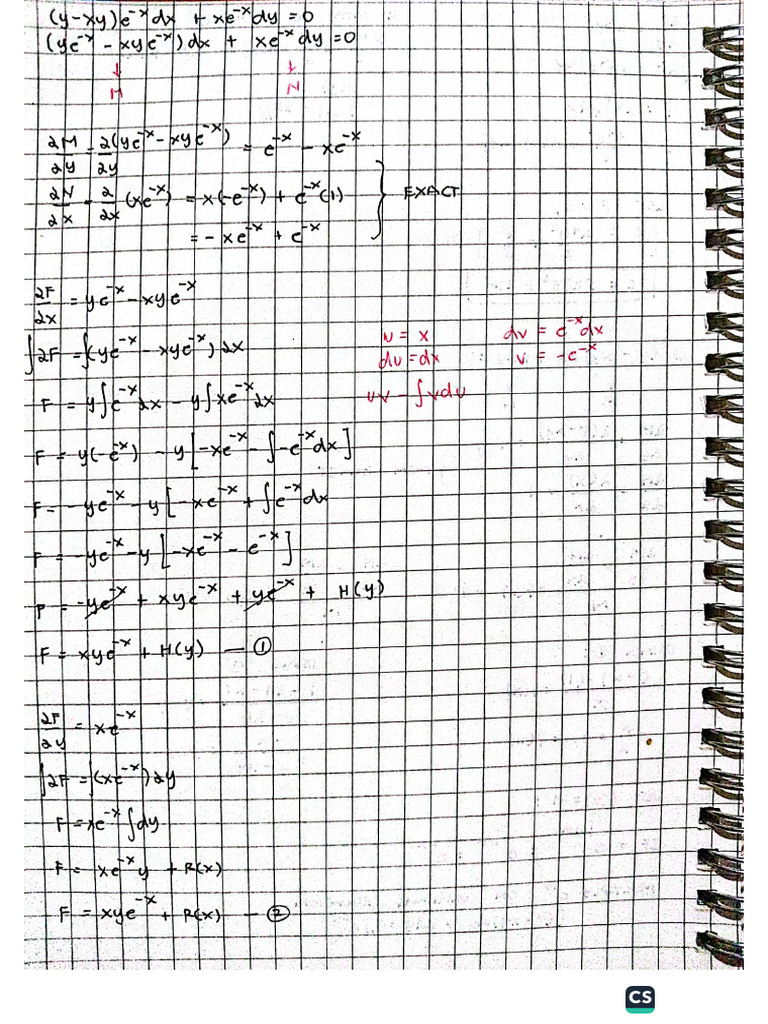 (y-xy)e^-x dx + xe^-x dy = 0
(ye^-x - xye^-x)dx + xe^-x dy = 0
↓ ↓
M N
∂M/∂y = ∂/∂y (ye^-x - xye^-x) = e^-x - xe^-x
∂N/∂x = ∂/∂x (xe^-x) = x(-e^-x) + e^-x(1) } EXACT
= -xe^-x + e^-x
∂F/∂x = ye^-x - xye^-x
∫∂F = ∫(ye^-x - xye^-x)∂x
u = x dv = e^-x dx
du = dx v = -e^-x
uv - ∫vdu
F = y∫e^-x ∂x - y∫xe^-x ∂x
F = y(-e^-x) - y[-xe^-x - ∫-e^-x dx]
F = -ye^-x - y[-xe^-x + ∫e^-x dx
F = -ye^-x - y[-xe^-x - e^-x]
F = -ye^-x + xye^-x + ye^-x + H(y)
F = xye^-x + H(y) — ①
∂F/∂y = xe^-x
∫∂F = ∫(xe^-x)∂y
F = xe^-x ∫dy
F = xe^-x y + R(x)
F = xye^-x + R(x) — ②
CS